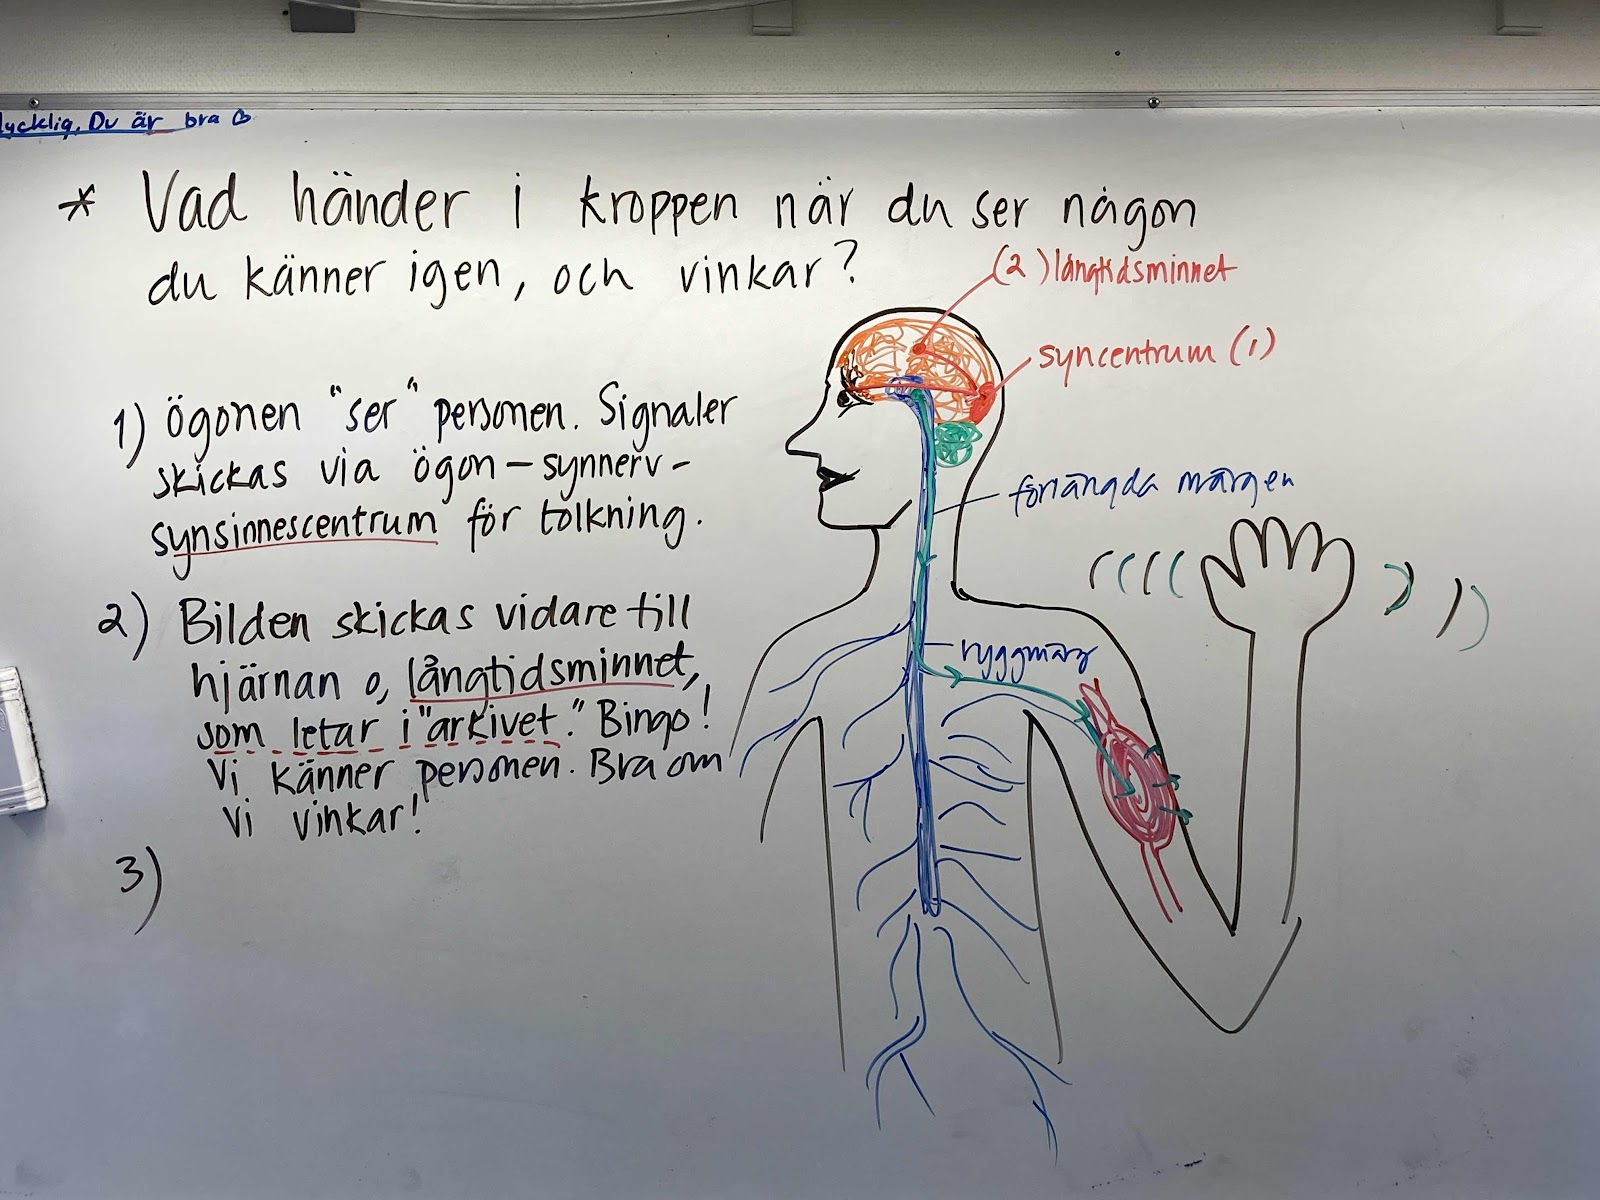 lycklig. Du är bra
* Vad händer i kroppen när du ser någon
du känner igen, och vinkar?
(2) långtidsminnet
syncentrum (1)
1) Ögonen "ser" personen. Signaler
skickas via ögon – synnerv –
synsinnescentrum för tolkning.
förlängda märgen
2) Bilden skickas vidare till
hjärnan o, långtidsminnet,
som letar i "arkivet." Bingo!
Vi känner personen. Bra om
vi vinkar!
ryggmärg
3)